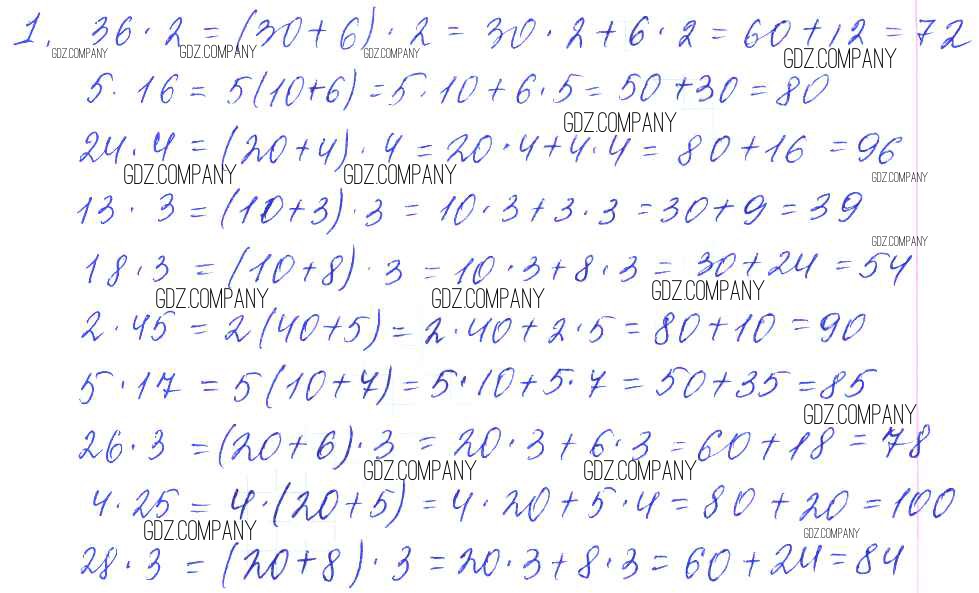 1. 36 · 2 = (30 + 6) · 2 = 30 · 2 + 6 · 2 = 60 + 12 = 72
GDZ.COMPANY GDZ.COMPANY GDZ.COMPANY GDZ.COMPANY
5 · 16 = 5(10+6) = 5 · 10 + 6 · 5 = 50 + 30 = 80
GDZ.COMPANY
24 · 4 = (20 + 4) · 4 = 20 · 4 + 4 · 4 = 80 + 16 = 96
GDZ.COMPANY GDZ.COMPANY GDZ.COMPANY
13 · 3 = (10 + 3) · 3 = 10 · 3 + 3 · 3 = 30 + 9 = 39
GDZ.COMPANY
18 · 3 = (10 + 8) · 3 = 10 · 3 + 8 · 3 = 30 + 24 = 54
GDZ.COMPANY GDZ.COMPANY GDZ.COMPANY
2 · 45 = 2 (40 + 5) = 2 · 40 + 2 · 5 = 80 + 10 = 90
5 · 17 = 5 (10 + 7) = 5 · 10 + 5 · 7 = 50 + 35 = 85
GDZ.COMPANY
26 · 3 = (20 + 6) · 3 = 20 · 3 + 6 · 3 = 60 + 18 = 78
GDZ.COMPANY GDZ.COMPANY
4 · 25 = 4 · (20 + 5) = 4 · 20 + 5 · 4 = 80 + 20 = 100
GDZ.COMPANY GDZ.COMPANY
28 · 3 = (20 + 8) · 3 = 20 · 3 + 8 · 3 = 60 + 24 = 84